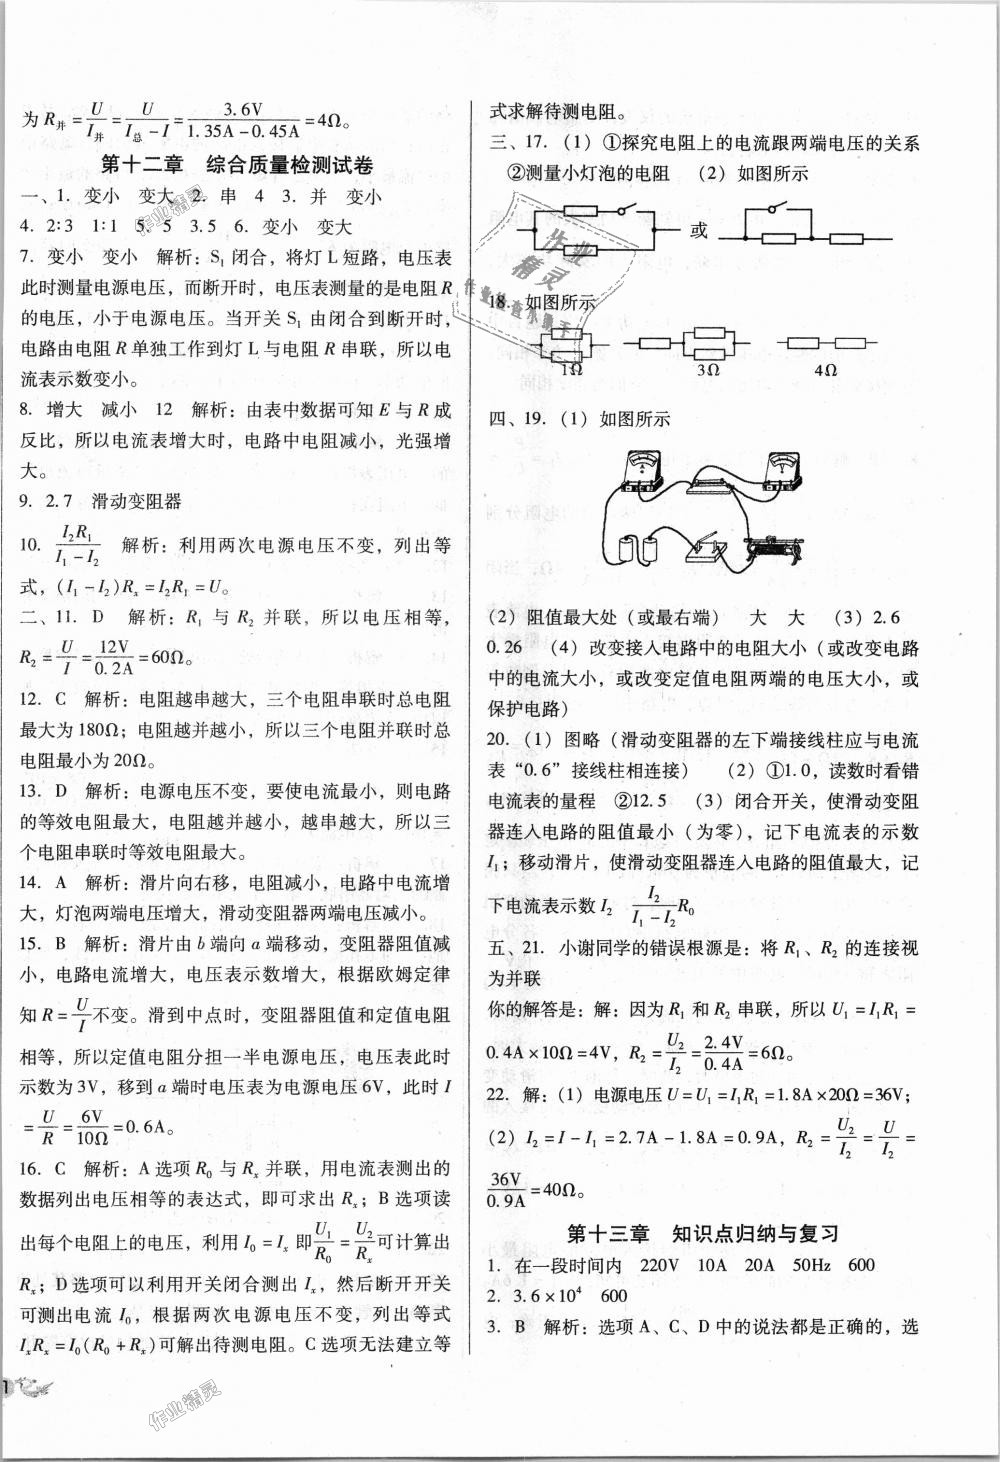 为R并=U/I并=U/(I总-I)=3.6V/(1.35A-0.45A)=4Ω。
第十二章　综合质量检测试卷
一、1. 变小　变大　2. 串　4　3. 并　变小
4. 2∶3　1∶1　5. 5　3.5　6. 变小　变大
7. 变小　变小　解析：S₁闭合，将灯L短路，电压表
此时测量电源电压，而断开时，电压表测量的是电阻R
的电压，小于电源电压。当开关S₁由闭合到断开时，
电路由电阻R单独工作到灯L与电阻R串联，所以电
流表示数变小。
8. 增大　减小　12　解析：由表中数据可知E与R成
反比，所以电流表增大时，电路中电阻减小，光强增
大。
9. 2.7　滑动变阻器
10. I₂R₁/(I₁-I₂)　解析：利用两次电源电压不变，列出等
式，(I₁-I₂)Rₓ=I₂R₁=U。
二、11. D　解析：R₁与R₂并联，所以电压相等，
R₂=U/I=12V/0.2A=60Ω。
12. C　解析：电阻越串越大，三个电阻串联时总电阻
最大为180Ω；电阻越并越小，所以三个电阻并联时总
电阻最小为20Ω。
13. D　解析：电源电压不变，要使电流最小，则电路
的等效电阻最大，电阻越并越小，越串越大，所以三
个电阻串联时等效电阻最大。
14. A　解析：滑片向右移，电阻减小，电路中电流增
大，灯泡两端电压增大，滑动变阻器两端电压减小。
15. B　解析：滑片由b端向a端移动，变阻器阻值减
小，电路电流增大，电压表示数增大，根据欧姆定律
知R=U/I不变。滑到中点时，变阻器阻值和定值电阻
相等，所以定值电阻分担一半电源电压，电压表此时
示数为3V，移到a端时电压表为电源电压6V，此时I
=U/R=6V/10Ω=0.6A。
16. C　解析：A选项R₀与Rₓ并联，用电流表测出的
数据列出电压相等的表达式，即可求出Rₓ；B选项读
出每个电阻上的电压，利用I₀=Iₓ即U₁/R₀=U₂/Rₓ可计算出
Rₓ；D选项可以利用开关闭合测出Iₓ，然后断开开关
可测出电流I₀，根据两次电源电压不变，列出等式
IₓRₓ=I₀(R₀+Rₓ)可解出待测电阻。C选项无法建立等
式求解待测电阻。
三、17.（1）①探究电阻上的电流跟两端电压的关系
②测量小灯泡的电阻　（2）如图所示
或
18. 如图所示
1Ω　3Ω　4Ω
四、19.（1）如图所示
（2）阻值最大处（或最右端）　大　大　（3）2.6
0.26　（4）改变接入电路中的电阻大小（或改变电路
中的电流大小，或改变定值电阻两端的电压大小，或
保护电路）
20.（1）图略（滑动变阻器的左下端接线柱应与电流
表“0.6”接线柱相连接）　（2）①1.0，读数时看错
电流表的量程　②12.5　（3）闭合开关，使滑动变阻
器连入电路的阻值最小（为零），记下电流表的示数
I₁；移动滑片，使滑动变阻器连入电路的阻值最大，记
下电流表示数I₂　I₂/(I₁-I₂)R₀
五、21. 小谢同学的错误根源是：将R₁、R₂的连接视
为并联
你的解答是：解：因为R₁和R₂串联，所以U₁=I₁R₁=
0.4A×10Ω=4V，R₂=U₂/I₂=2.4V/0.4A=6Ω。
22. 解：（1）电源电压U=U₁=I₁R₁=1.8A×20Ω=36V；
（2）I₂=I-I₁=2.7A-1.8A=0.9A，R₂=U₂/I₂=U/I₂=
36V/0.9A=40Ω。
第十三章　知识点归纳与复习
1. 在一段时间内　220V　10A　20A　50Hz　600
2. 3.6×10⁴　600
3. B　解析：选项A、C、D中的说法都是正确的，选
作业精灵
作业精灵
作业检查小助手
作业精灵